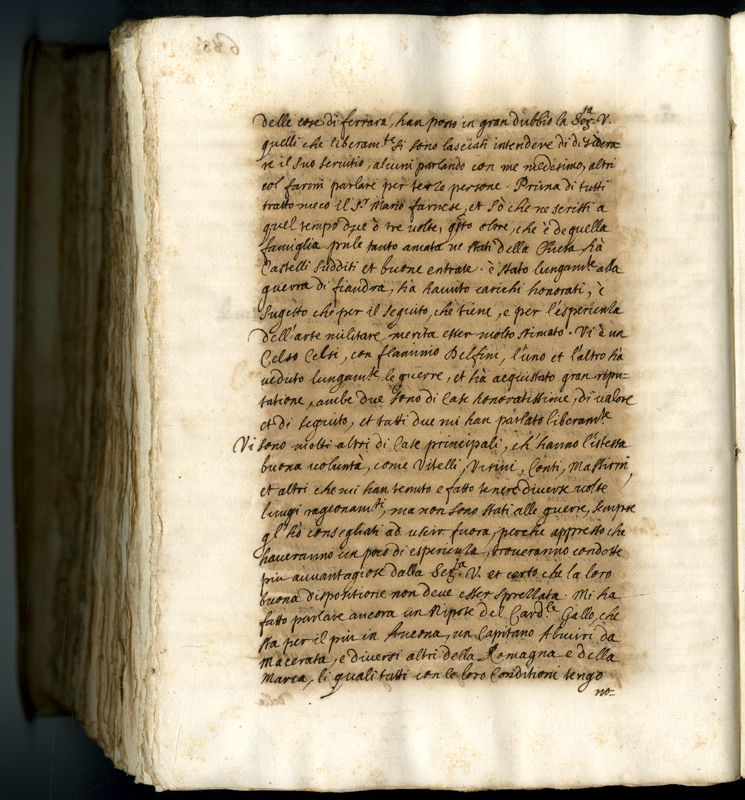 delle cose di ferrara, han posto in gran dubbio la Ser.ta V.
quelli che liberam.te si sono lasciati intendere di desidera
re il suo servitio, alcuni parlando con me medesimo, altri
col farmi parlare per terze persone. Prima di tutti
tratto meco il S.r Mario farnese, et so che ne scrissi a
quel tempo due ò tre volte, q.sto oltre, che è de quella
famiglia tanto amata ne stati della Chiesa hà
Castelli sudditi et buone entrate. è stato lungam.te alla
guerra di fiandra, hà havuto carichi honorati, è
sugetto che per il seguito, che tiene, e per l'esperienza
dell'arte militare merita esser molto stimato. Vi è un
Celso Celsi, con flaminio Delfini, l'uno et l'altro hà
veduto lungam.te le guerre, et hà acquistato gran ripu=
tatione, ambe due sono di Case honoratissime, di valore
et di seguito, et tutti due mi han parlato liberam.te
Vi sono molti altri di Case principali, ch'hanno l'istessa
buona voluntà, come Vitelli, Ursini, Conti, Massimi,
et altri che mi han tenuto e fatto tenere diverse volte
lungi ragionam.ti, ma non sono stati alle guerre, sempre
gl'hò consegliati ad uscir fuora, perche appresso che
haveranno un poco di esperienza, troveranno condotte
piu avvantagiose dalla Ser.ta V. et certo che la loro
buona dispositione non deve esser sprezzata. Mi ha
fatto parlare ancora un Nipote del Card.le Gallo, che
sta per il piu in Ancona, un Capitano da
Macerata, e diversi altri della Romagna e della
Marca, li quali tutti con le loro Conditioni tengo
no-